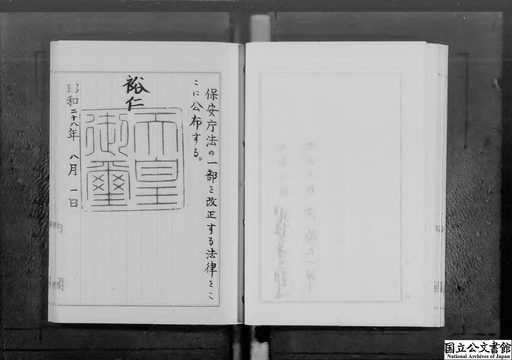 保安庁法の一部を改正する法律をこ
こに公布する。
裕仁
天皇
御璽
昭和二十八年 八月 一日
国立公文書館
National Archives of Japan